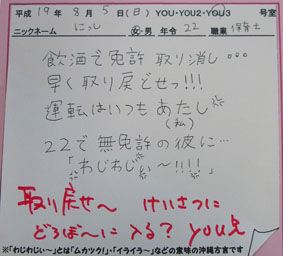 平成 19年 8月 5日(日) YOU・YOU2・YOU3 号室
ニックネーム にっし 女・男 年令 22 職業 保育士
飲酒で免許 取り消し…
早く取り戻どせっ!!!
運転はいつも あたし
(私)
22で 無免許の彼に…
「わじわじぃ~!!!!」
取り戻せ~ けいさつに
どろぼ~に 入る? you兄
※「わじわじい~」とは「ムカツク!」・「イライラ~」などの意味の沖縄方言です